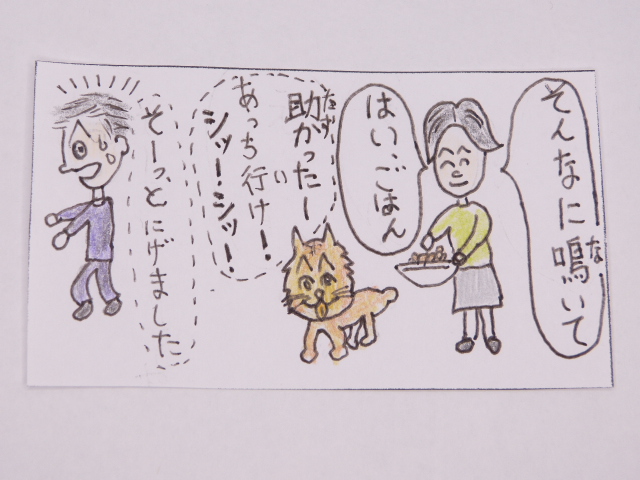 そんなに鳴いて
はい、ごはん
助かったー
あっち行け！
シッ！シッ！
そーっとにげました